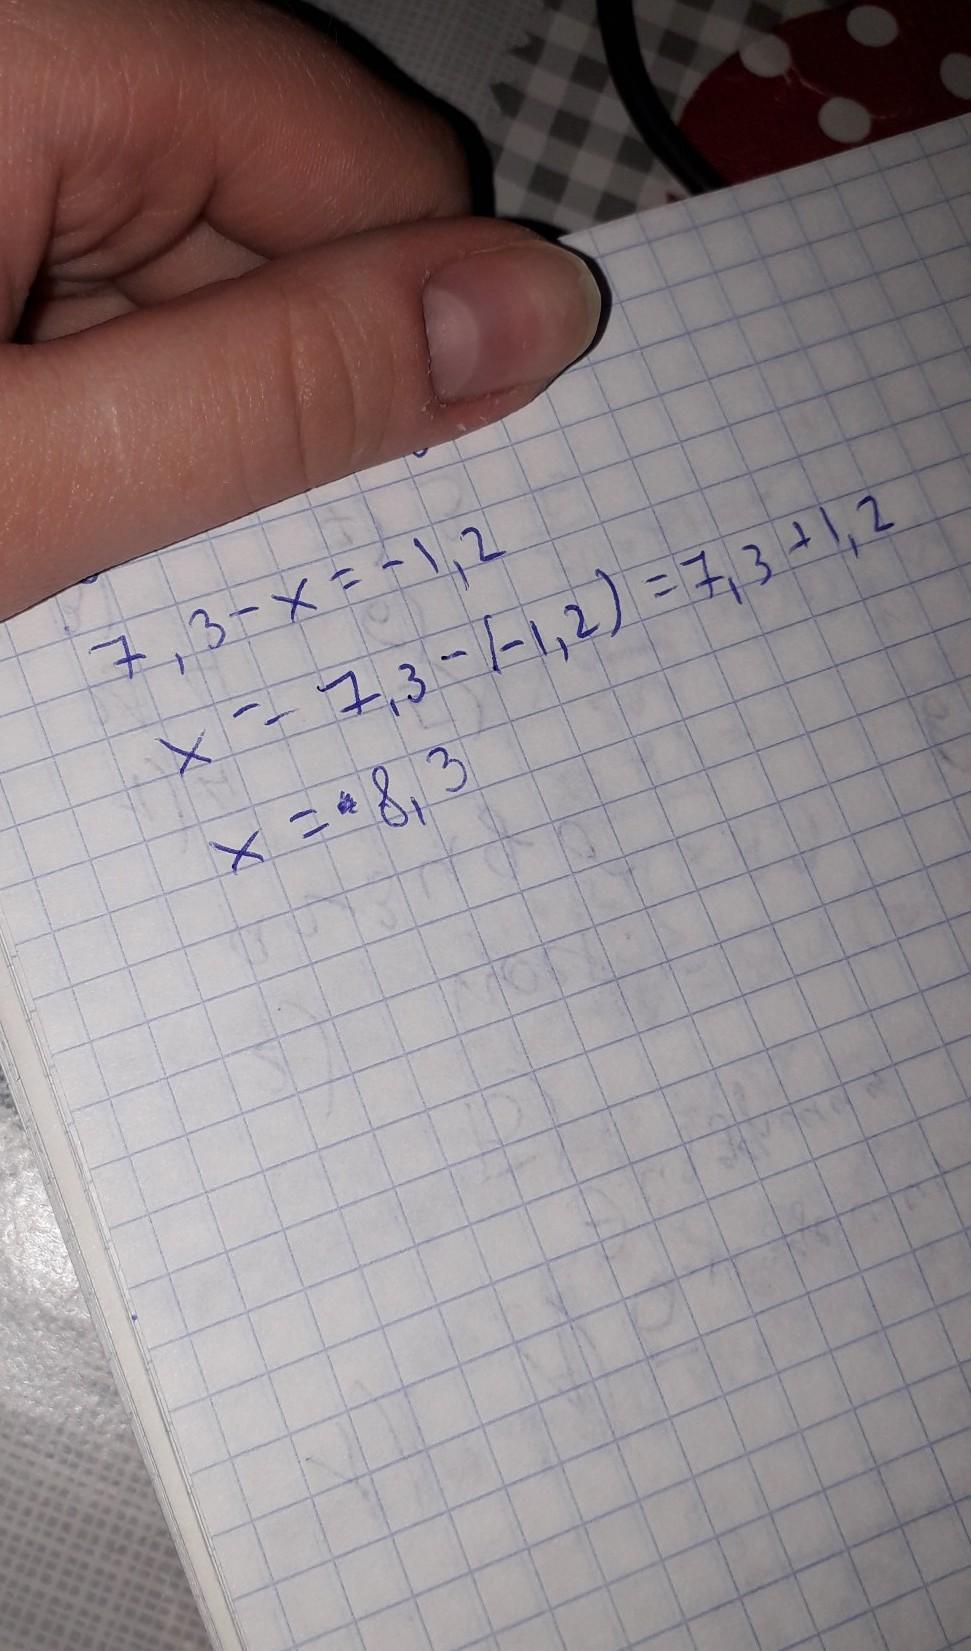 7,3-x=-1,2
x=7,3-(-1,2)=7,3+1,2
x=8,3